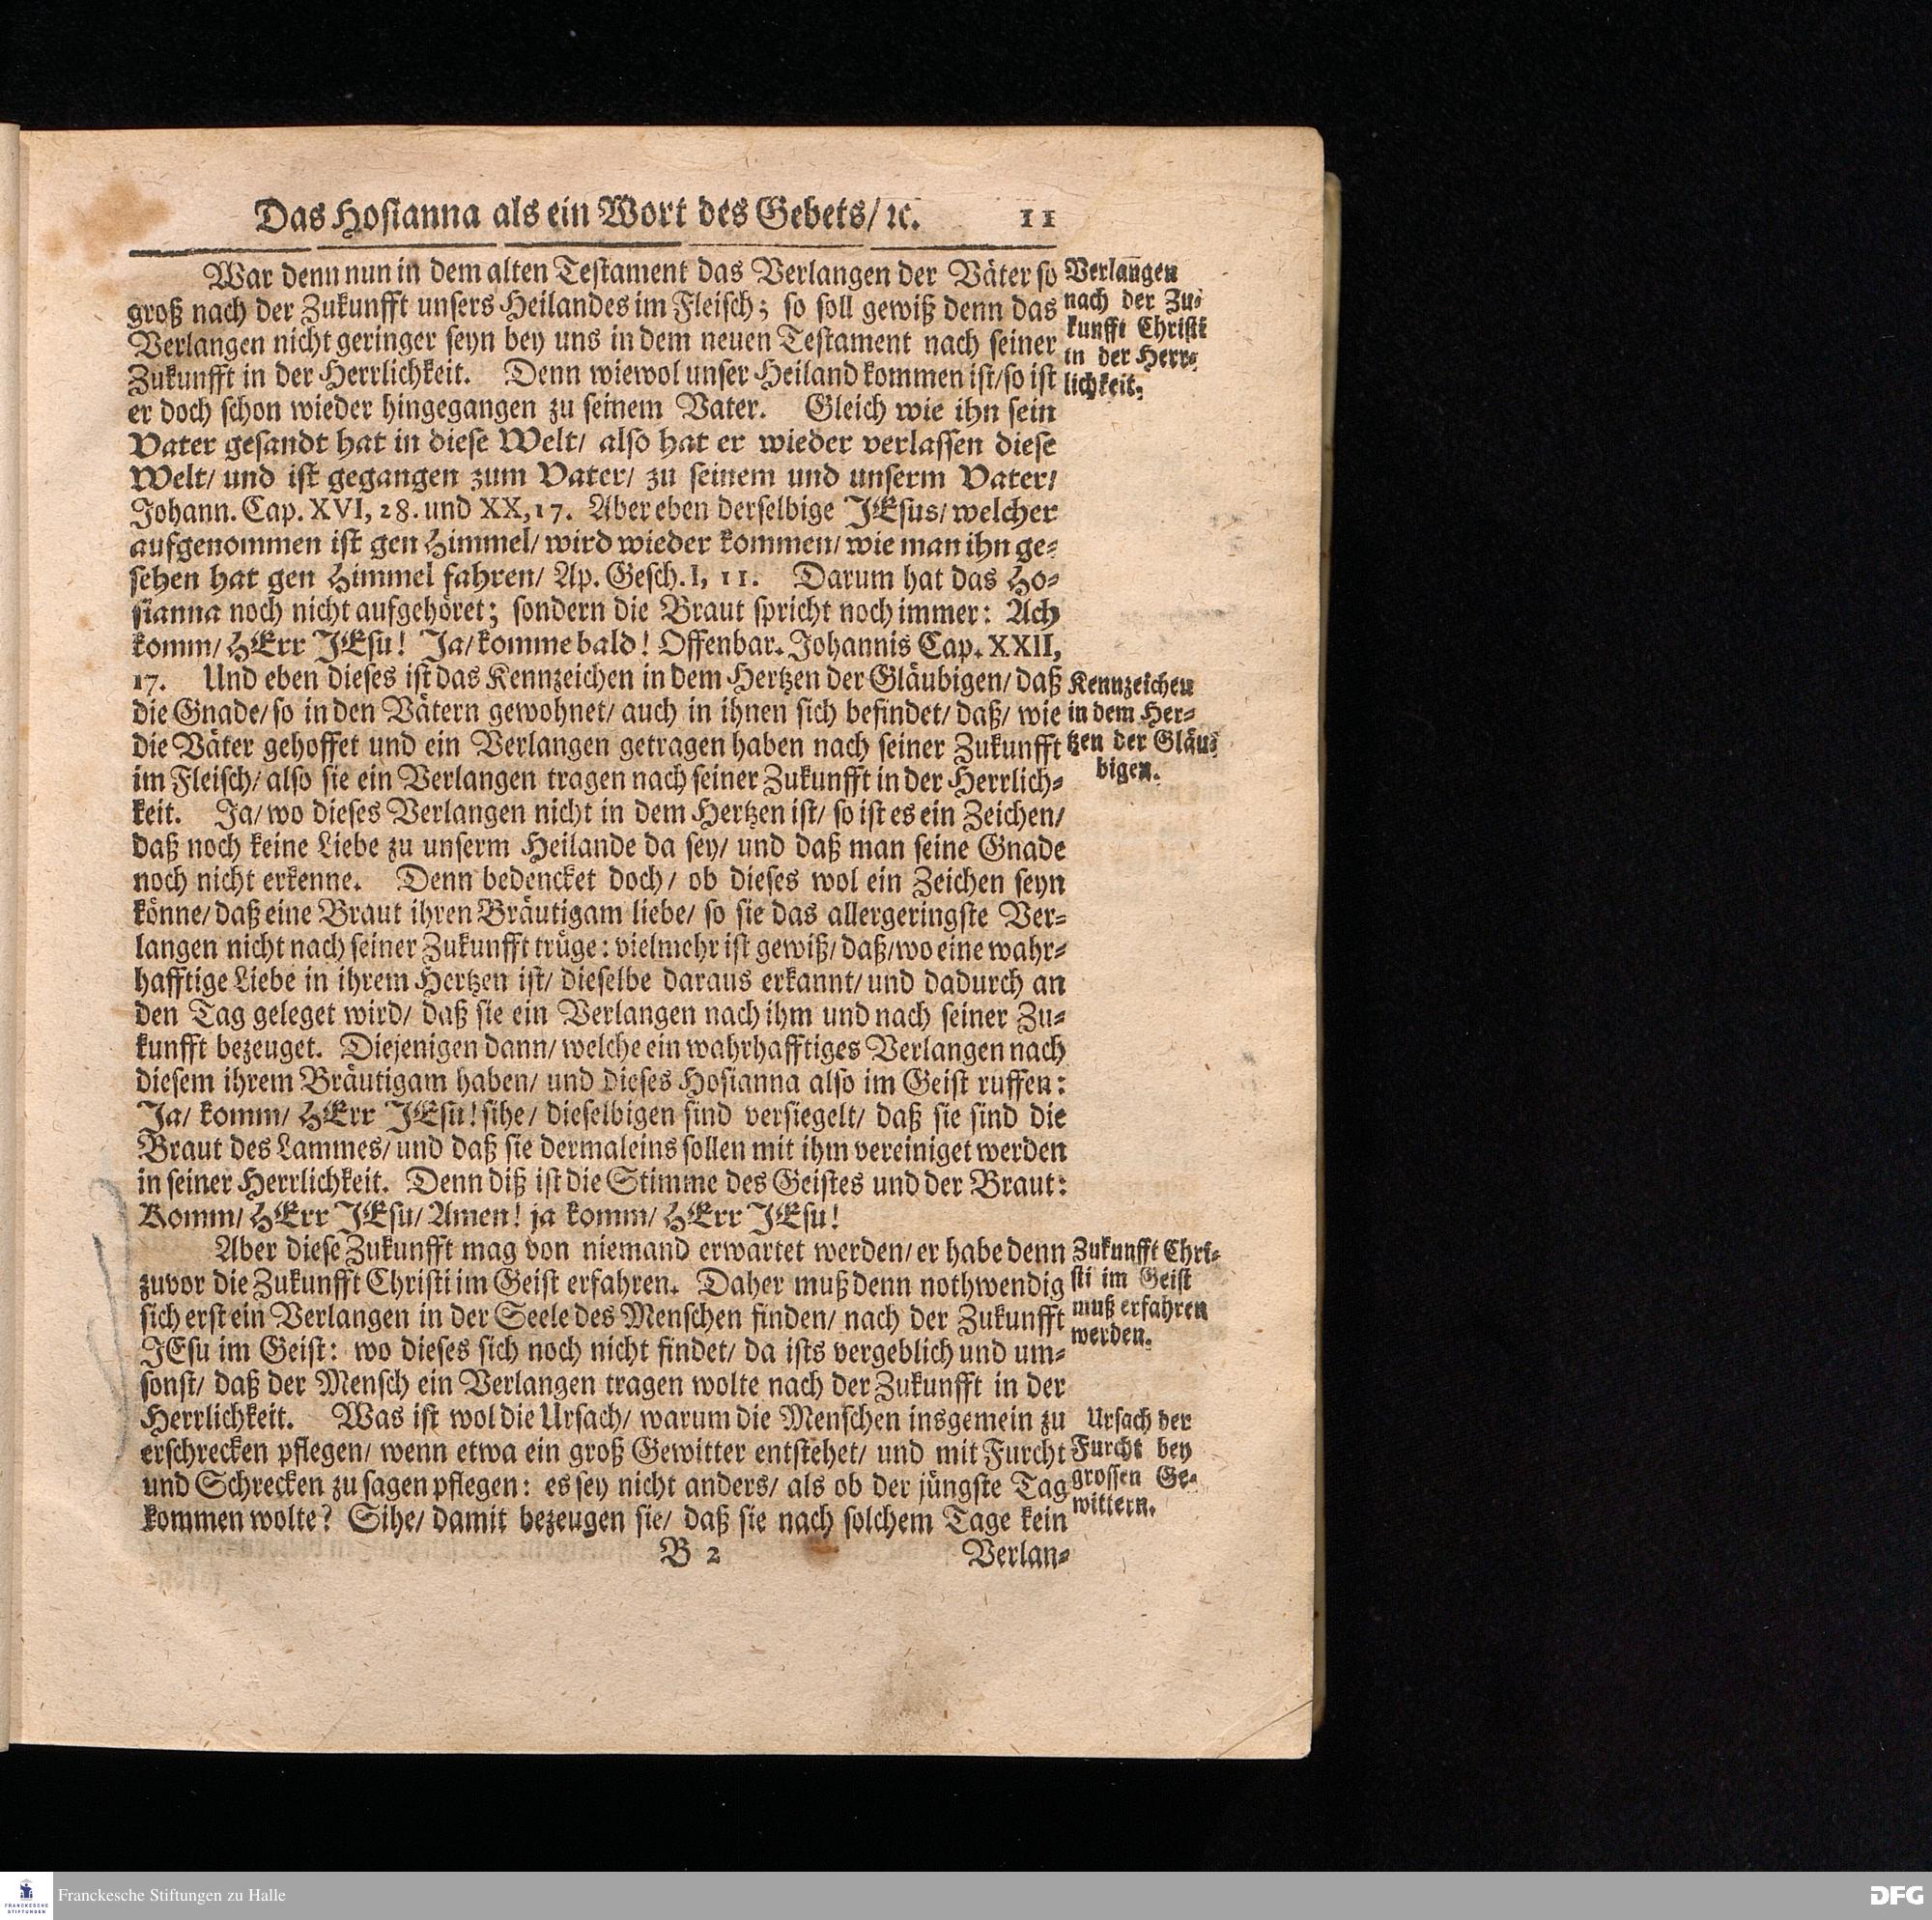 Das Hosianna als ein Wort des Gebets/ ꝛc. 11
War denn nun in dem alten Testament das Verlangen der Väter so
groß nach der Zukunfft unsers Heilandes im Fleisch; so soll gewiß denn das
Verlangen nicht geringer seyn bey uns in dem neuen Testament nach seiner
Zukunfft in der Herrlichkeit. Denn wiewol unser Heiland kommen ist/ so ist
er doch schon wieder hingegangen zu seinem Vater. Gleich wie ihn sein
Vater gesandt hat in diese Welt/ also hat er wieder verlassen diese
Welt/ und ist gegangen zum Vater/ zu seinem und unserm Vater/
Johann. Cap. XVI, 28. und XX, 17. Aber eben derselbige JEsus/ welcher
aufgenommen ist gen Himmel/ wird wieder kommen/ wie man ihn ge-
sehen hat gen Himmel fahren/ Ap. Gesch. I, 11. Darum hat das Ho-
sianna noch nicht aufgehöret; sondern die Braut spricht noch immer: Ach
komm/ HErr JEsu! Ja/ komme bald! Offenbar. Johannis Cap. XXII,
17. Und eben dieses ist das Kennzeichen in dem Hertzen der Gläubigen/ daß
die Gnade/ so in den Vätern gewohnet/ auch in ihnen sich befindet/ daß/ wie
die Väter gehoffet und ein Verlangen getragen haben nach seiner Zukunfft
im Fleisch/ also sie ein Verlangen tragen nach seiner Zukunfft in der Herrlich-
keit. Ja/ wo dieses Verlangen nicht in dem Hertzen ist/ so ist es ein Zeichen/
daß noch keine Liebe zu unserm Heilande da sey/ und daß man seine Gnade
noch nicht erkenne. Denn bedencket doch/ ob dieses wol ein Zeichen seyn
könne/ daß eine Braut ihren Bräutigam liebe/ so sie das allergeringste Ver-
langen nicht nach seiner Zukunfft trüge: vielmehr ist gewiß/ daß/ wo eine wahr-
hafftige Liebe in ihrem Hertzen ist/ dieselbe daraus erkannt/ und dadurch an
den Tag geleget wird/ daß sie ein Verlangen nach ihm und nach seiner Zu-
kunfft bezeuget. Diejenigen dann/ welche ein wahrhafftiges Verlangen nach
diesem ihrem Bräutigam haben/ und dieses Hosianna also im Geist ruffen:
Ja/ komm/ HErr JEsu! sihe/ dieselbigen sind versiegelt/ daß sie sind die
Braut des Lammes/ und daß sie dermaleins sollen mit ihm vereiniget werden
in seiner Herrlichkeit. Denn diß ist die Stimme des Geistes und der Braut:
Komm/ HErr JEsu/ Amen! ja komm/ HErr JEsu!
Aber diese Zukunfft mag von niemand erwartet werden/ er habe denn
zuvor die Zukunfft Christi im Geist erfahren. Daher muß denn nothwendig
sich erst ein Verlangen in der Seele des Menschen finden/ nach der Zukunfft
JEsu im Geist: wo dieses sich noch nicht findet/ da ists vergeblich und um-
sonst/ daß der Mensch ein Verlangen tragen wolte nach der Zukunfft in der
Herrlichkeit. Was ist wol die Ursach/ warum die Menschen insgemein zu
erschrecken pflegen/ wenn etwa ein groß Gewitter entstehet/ und mit Furcht
und Schrecken zu sagen pflegen: es sey nicht anders/ als ob der jüngste Tag
kommen wolte? Sihe/ damit bezeugen sie/ daß sie nach solchem Tage kein
B 2 Verlan-
Verlangen
nach der Zu-
kunfft Christi
in der Herr-
lichkeit.
Kennzeichen
in dem Her-
tzen der Gläu-
bigen.
Zukunfft Chri-
sti im Geist
muß erfahren
werden.
Ursach der
Furcht bey
grossen Ge-
wittern.
FRANCKESCHE
STIFTUNGEN
Franckesche Stiftungen zu Halle
DFG